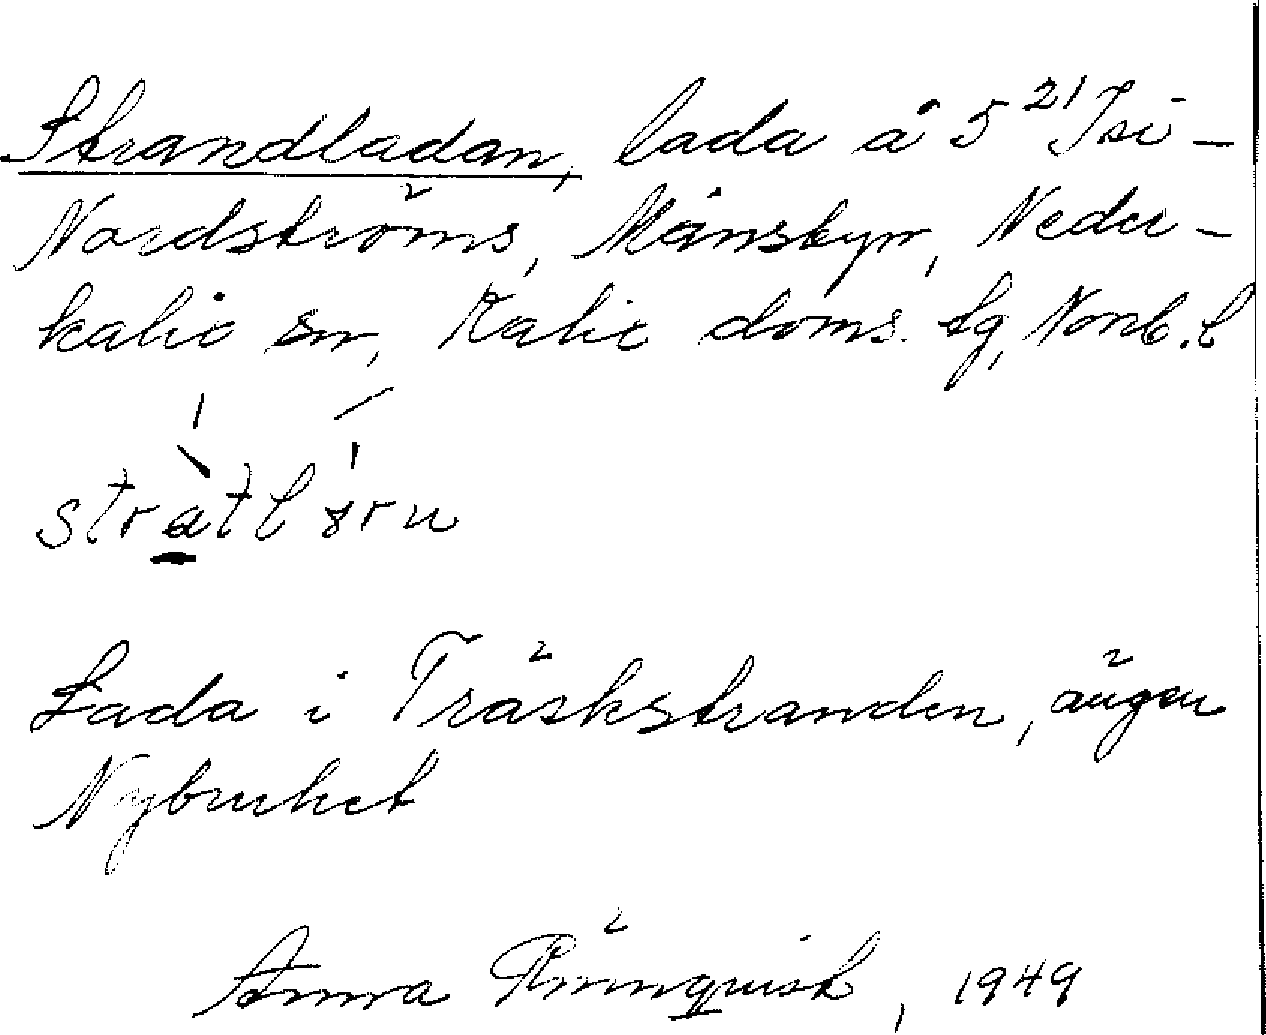 Strandladan, lada å 5²¹ Isi-
Nordströms, Månsbyn, Neder-
kalix sn, Kalix doms. tg, Norrb. l
Lada i Träskstranden, ängen
Nybruket
Anna Rönnquist, 1949